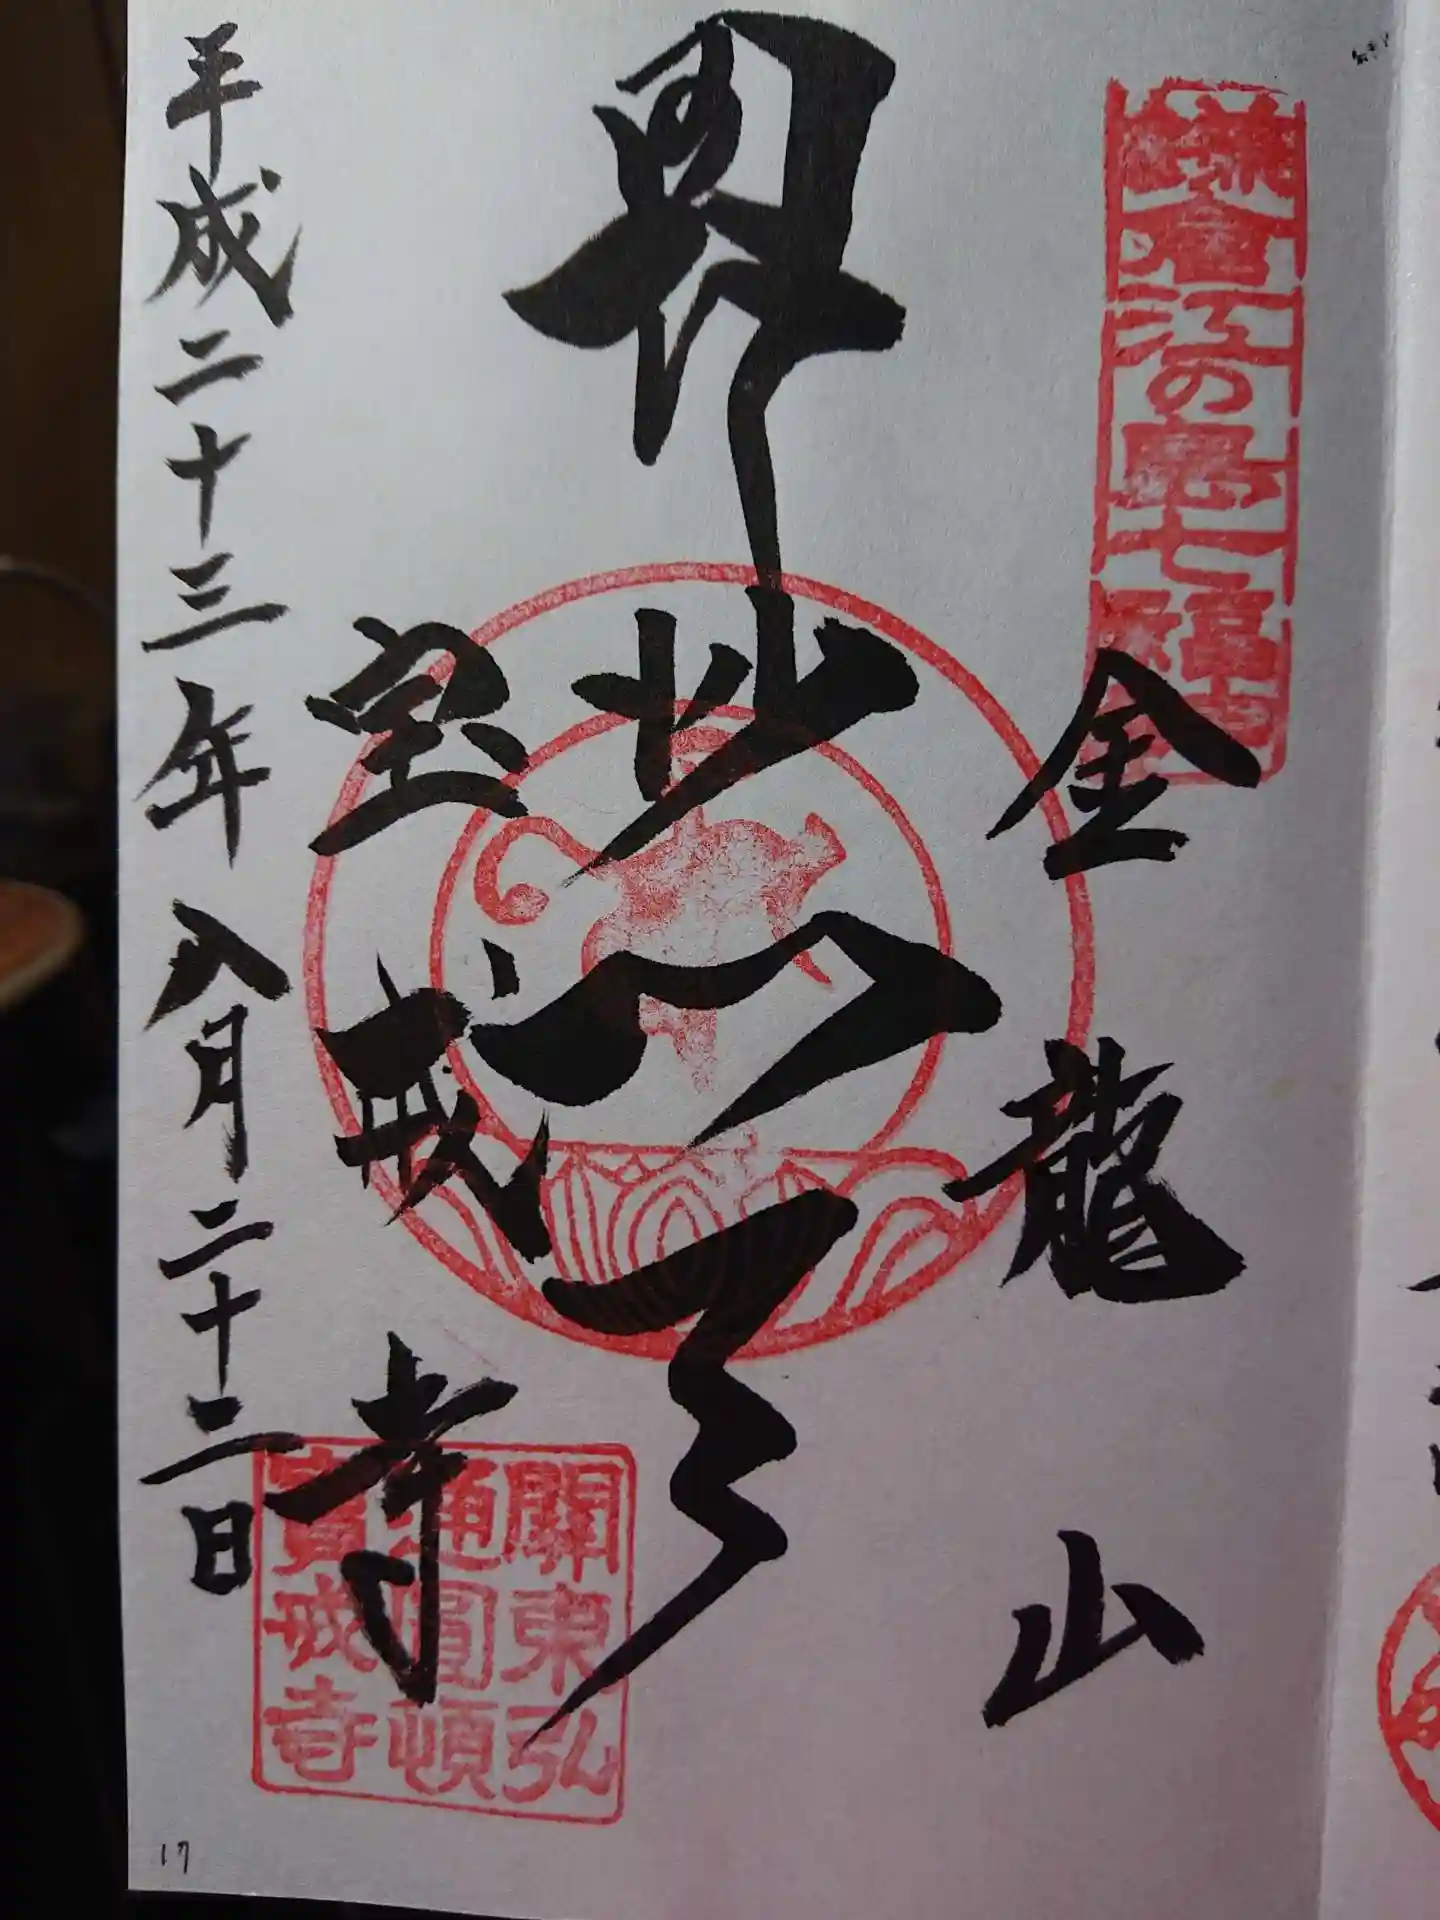 鎌倉江の島七福神
金龍山
毘沙門天
宝戒寺
關東弘
通圓頓
寶戒寺
平成二十三年八月二十二日
17